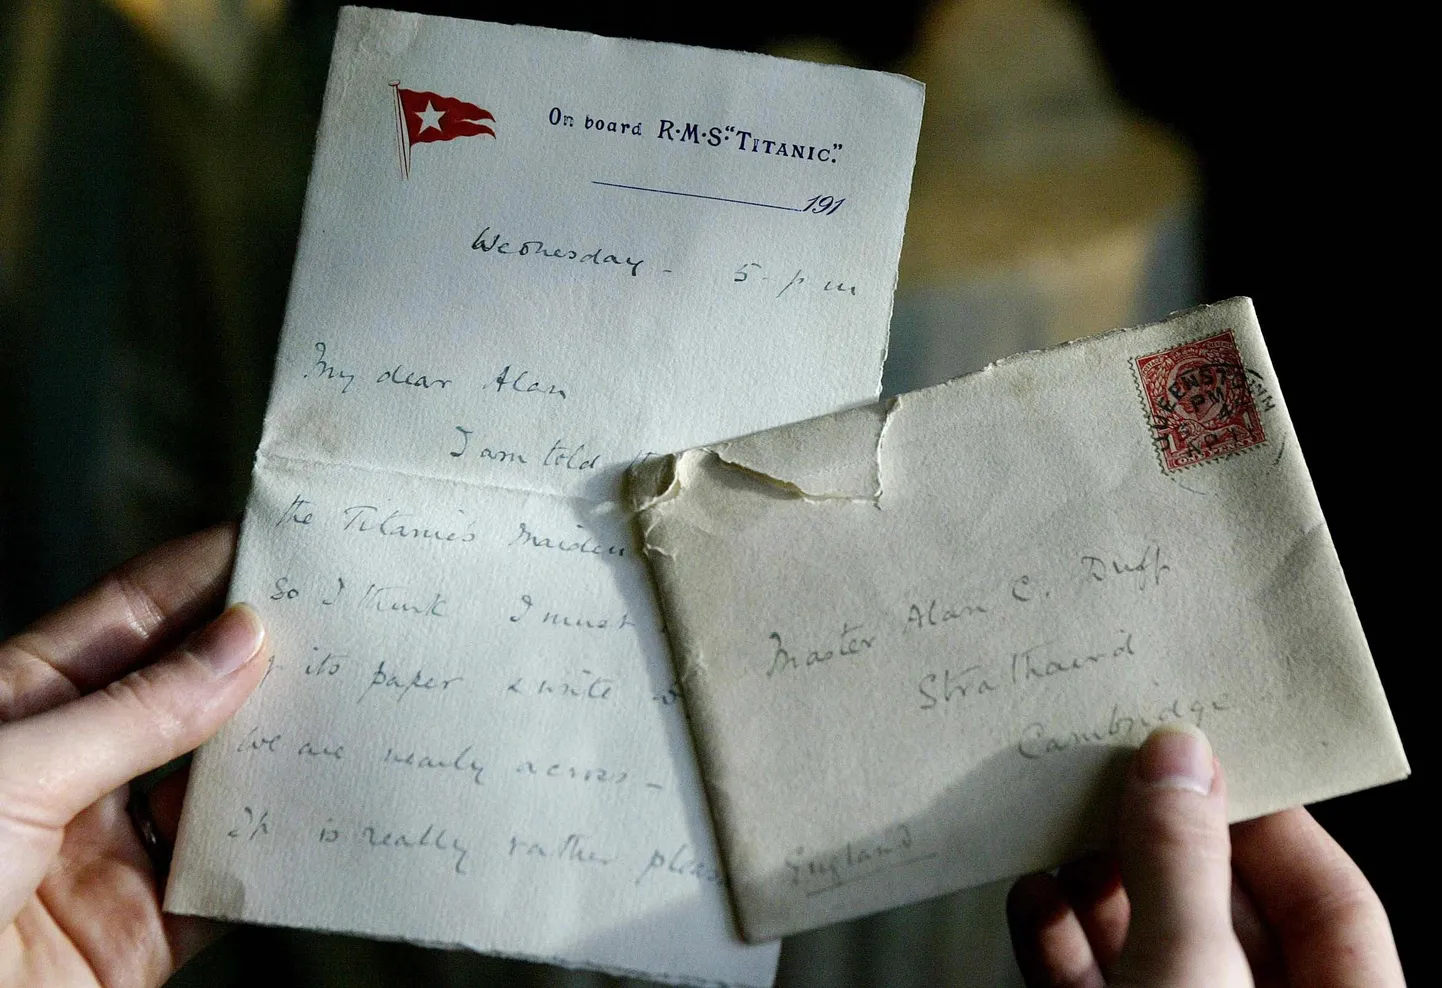 On board R·M·S·"TITANIC."
191
Wednesday - 5- p m
My dear Alan
I am told
the Titanic's Maiden
So I think I must
of its paper & write
We are nearly across -
It is really rather pleas
QUEENSTOWN
PM
AP 11
Master Alan C. Duff
Strathaird
Cambridge
England